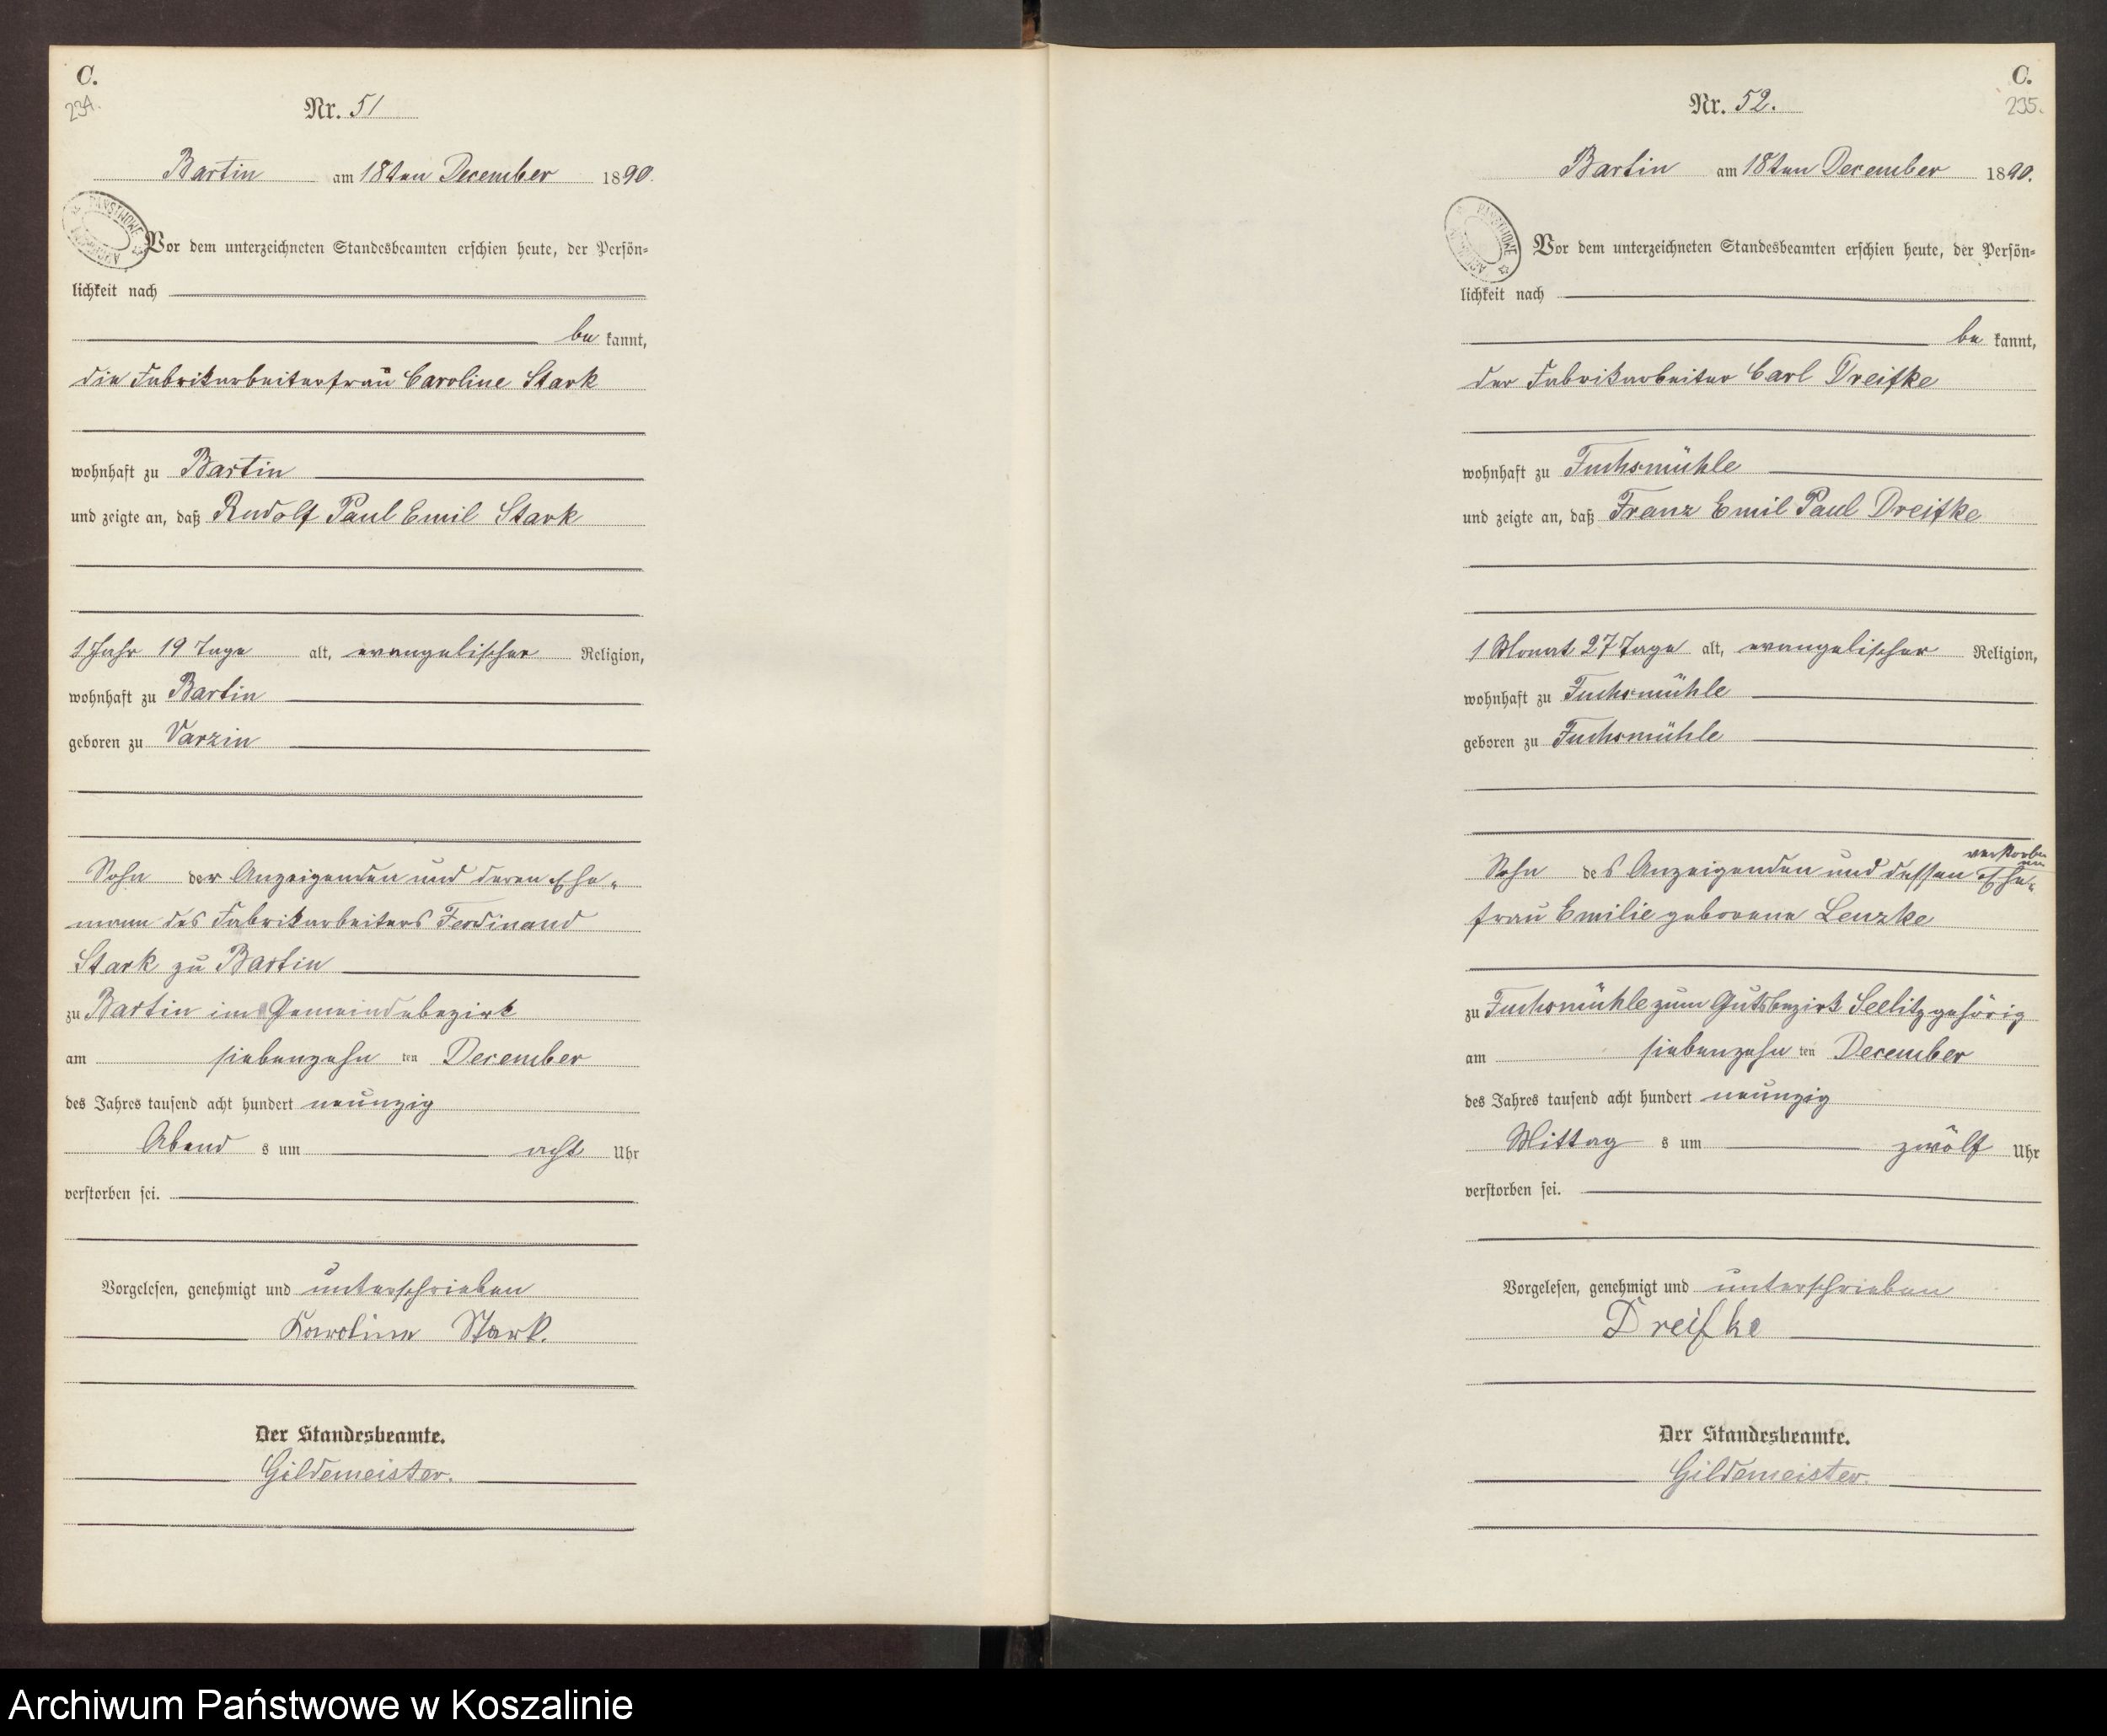 C.
234.
Nr. 51
Bartin am 18ten December 1890.
Vor dem unterzeichneten Standesbeamten erschien heute, der Persön-
lichkeit nach
be kannt,
die Fabrikarbeiterfrau Caroline Stark
wohnhaft zu Bartin
und zeigte an, daß Rudolf Paul Emil Stark
1 Jahr 19 Tage alt, evangelischer Religion,
wohnhaft zu Bartin
geboren zu Varzin
Sohn der Anzeigenden und deren Ehe-
mann des Fabrikarbeiters Ferdinand
Stark zu Bartin
zu Bartin im Gemeindebezirk
am siebenzehn ten December
des Jahres tausend acht hundert neunzig
Abend s um acht Uhr
verstorben sei.
Vorgelesen, genehmigt und unterschrieben
Karoline Stark.
Der Standesbeamte.
Gildemeister.
C.
235.
Nr. 52.
Bartin am 18ten December 1890.
PANSTWOWE
Vor dem unterzeichneten Standesbeamten erschien heute, der Persön-
lichkeit nach
be kannt,
der Fabrikarbeiter Carl Dreifke
wohnhaft zu Fuchsmühle
und zeigte an, daß Franz Emil Paul Dreifke
1 Monat 27 Tage alt, evangelischer Religion,
wohnhaft zu Fuchsmühle
geboren zu Fuchsmühle
Sohn des Anzeigenden und dessen verstorbenen Ehe-
frau Emilie geborene Lenzke
zu Fuchsmühle zum Gutsbezirk Seelitz gehörig
am siebenzehn ten December
des Jahres tausend acht hundert neunzig
Mittag s um zwölf Uhr
verstorben sei.
Vorgelesen, genehmigt und unterschrieben
Dreifke
Der Standesbeamte.
Gildemeister.
Archiwum Państwowe w Koszalinie